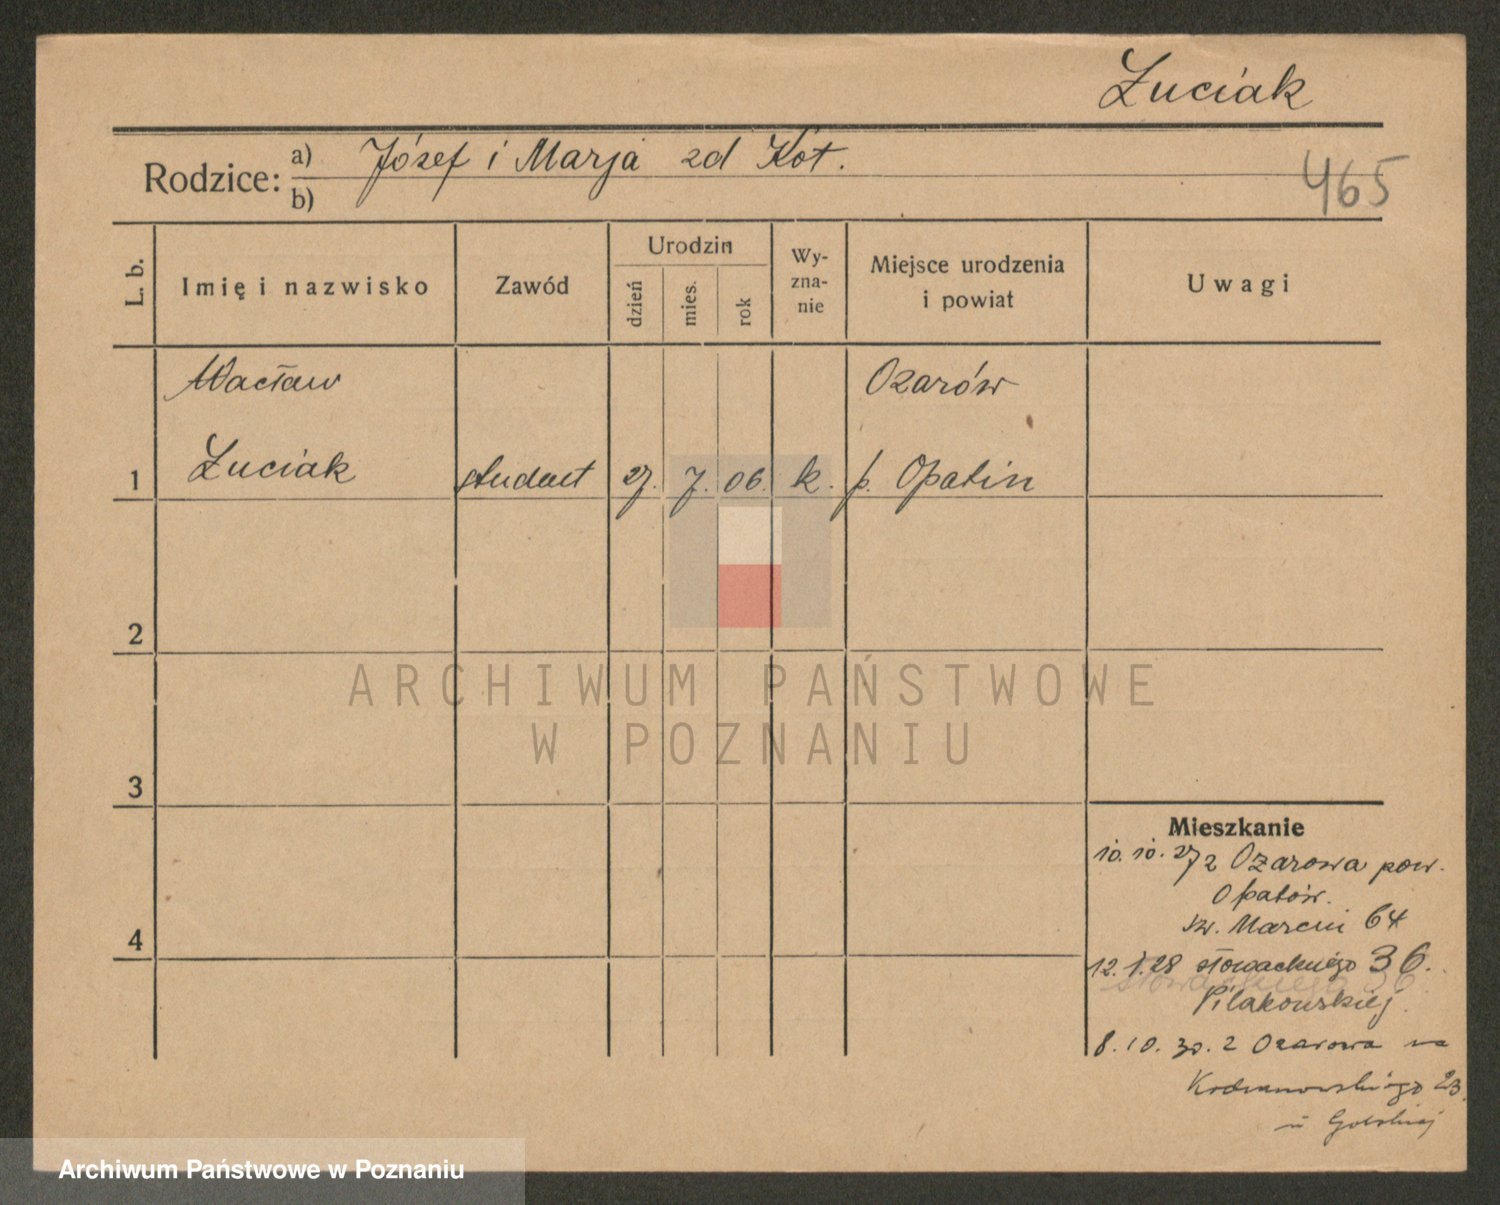 Łuciak
Rodzice: a) Józef i Marja zd Kot.
b)
465
L. b.
Imię i nazwisko
Zawód
Urodzin
dzień
mies.
rok
Wy-
zna-
nie
Miejsce urodzenia
i powiat
Uwagi
Wacław
Ozarów
1
Łuciak
student
27.
7.
06.
k.
p. Opatin
2
3
4
ARCHIWUM PAŃSTWOWE
W POZNANIU
Mieszkanie
10.10.27 z Ozarowa pow.
Opatów.
św. Marcin 64
12.1.28 słowackiego 36.
słowackiego 36.
Pilakowskiej.
8.10.30. z Ozarowa na
23.
u
Archiwum Państwowe w Poznaniu